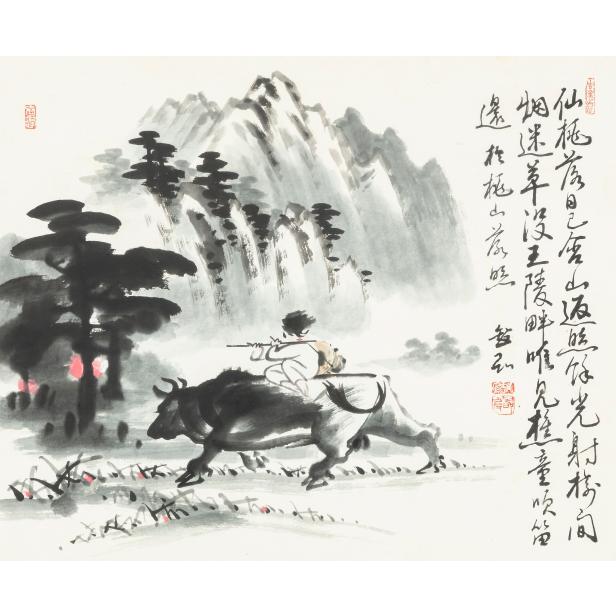 仙桃落日已含山返照餘光射树间
烟迷草没王陵畔唯見樵童吹笛
還 於桃山落照